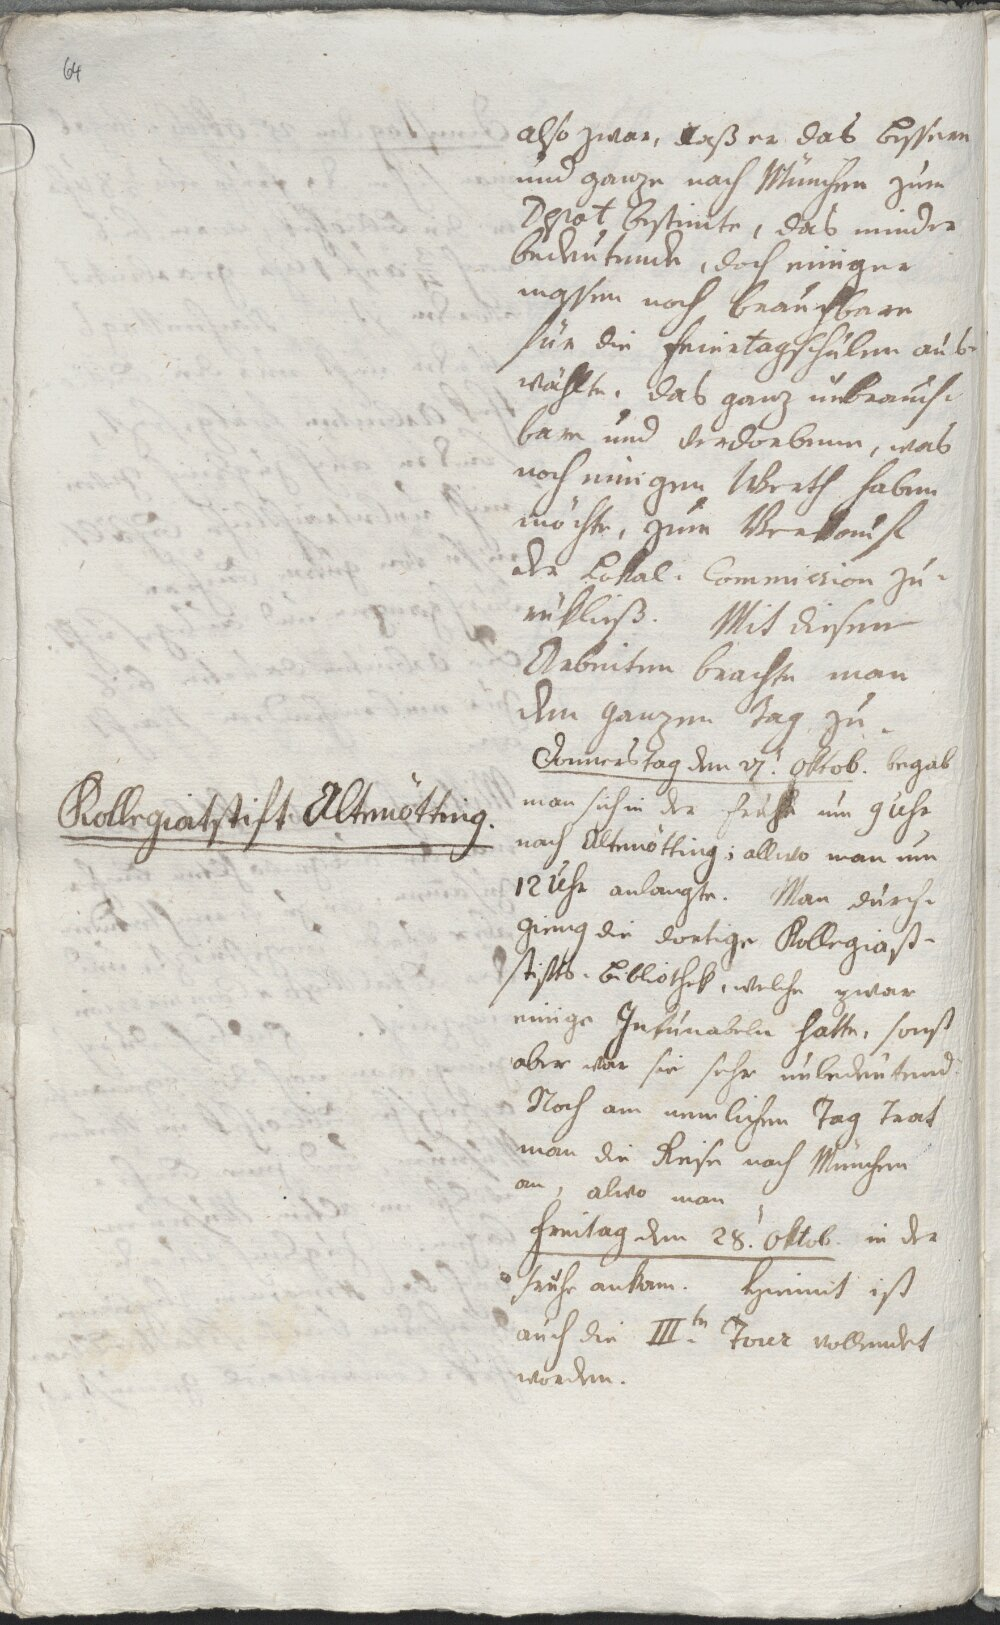 64
also zwar, daß er das bessere
und ganze nach München zum
Depot bestimte, das minder
bedeutende, doch einiger
massen noch brauchbare
für die Feiertagschulen aus-
wählte, das ganz unbrauch-
bare und verdorbene, was
noch einigen Werth haben
möchte, zum Verkauf
der Lokal-Commission zu-
rükließ. Mit diesen
Arbeiten brachte man
den ganzen Tag zu.
Donnerstag den 27. Oktob. begab
Kollegiatstift Altenötting.
man sich in der Frühe um 9 Uhr
nach Altenötting; allwo man um
12 Uhr anlangte. Man durch-
gieng die dortige Kollegiat-
stifts-Bibliothek, welche zwar
einige Inkunabeln hatte, sonst
aber war sie sehr unbedeutend.
Noch am nemlichen Tag trat
man die Reise nach München
an, alwo man
Freitag den 28. Oktob. in der
Frühe ankam. Hiemit ist
auch die III.te Tour vollendet
worden.